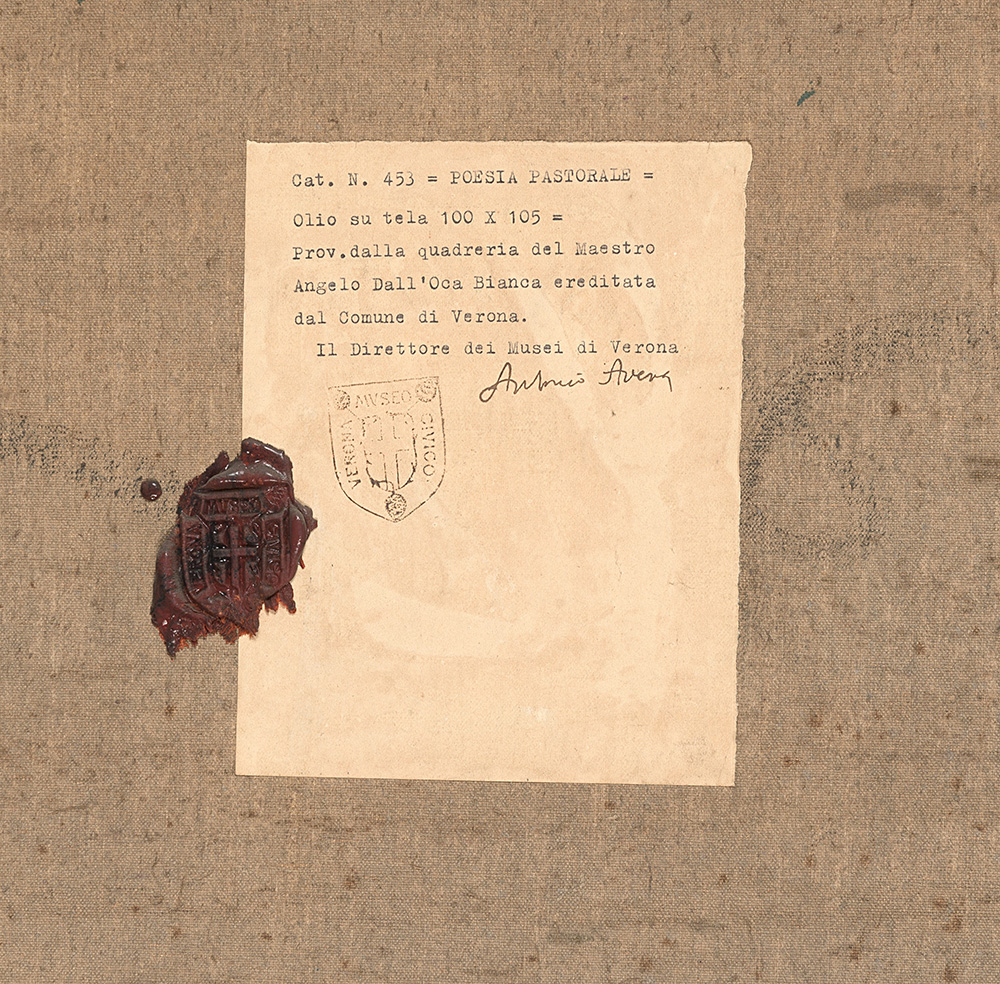 Cat. N. 453 = POESIA PASTORALE =
Olio su tela 100 X 105 =
Prov.dalla quadreria del Maestro
Angelo Dall'Oca Bianca ereditata
dal Comune di Verona.
Il Direttore dei Musei di Verona
Antonio Avena
VERONA MVSEO CIVICO
VERONA MUSEO CIVICO